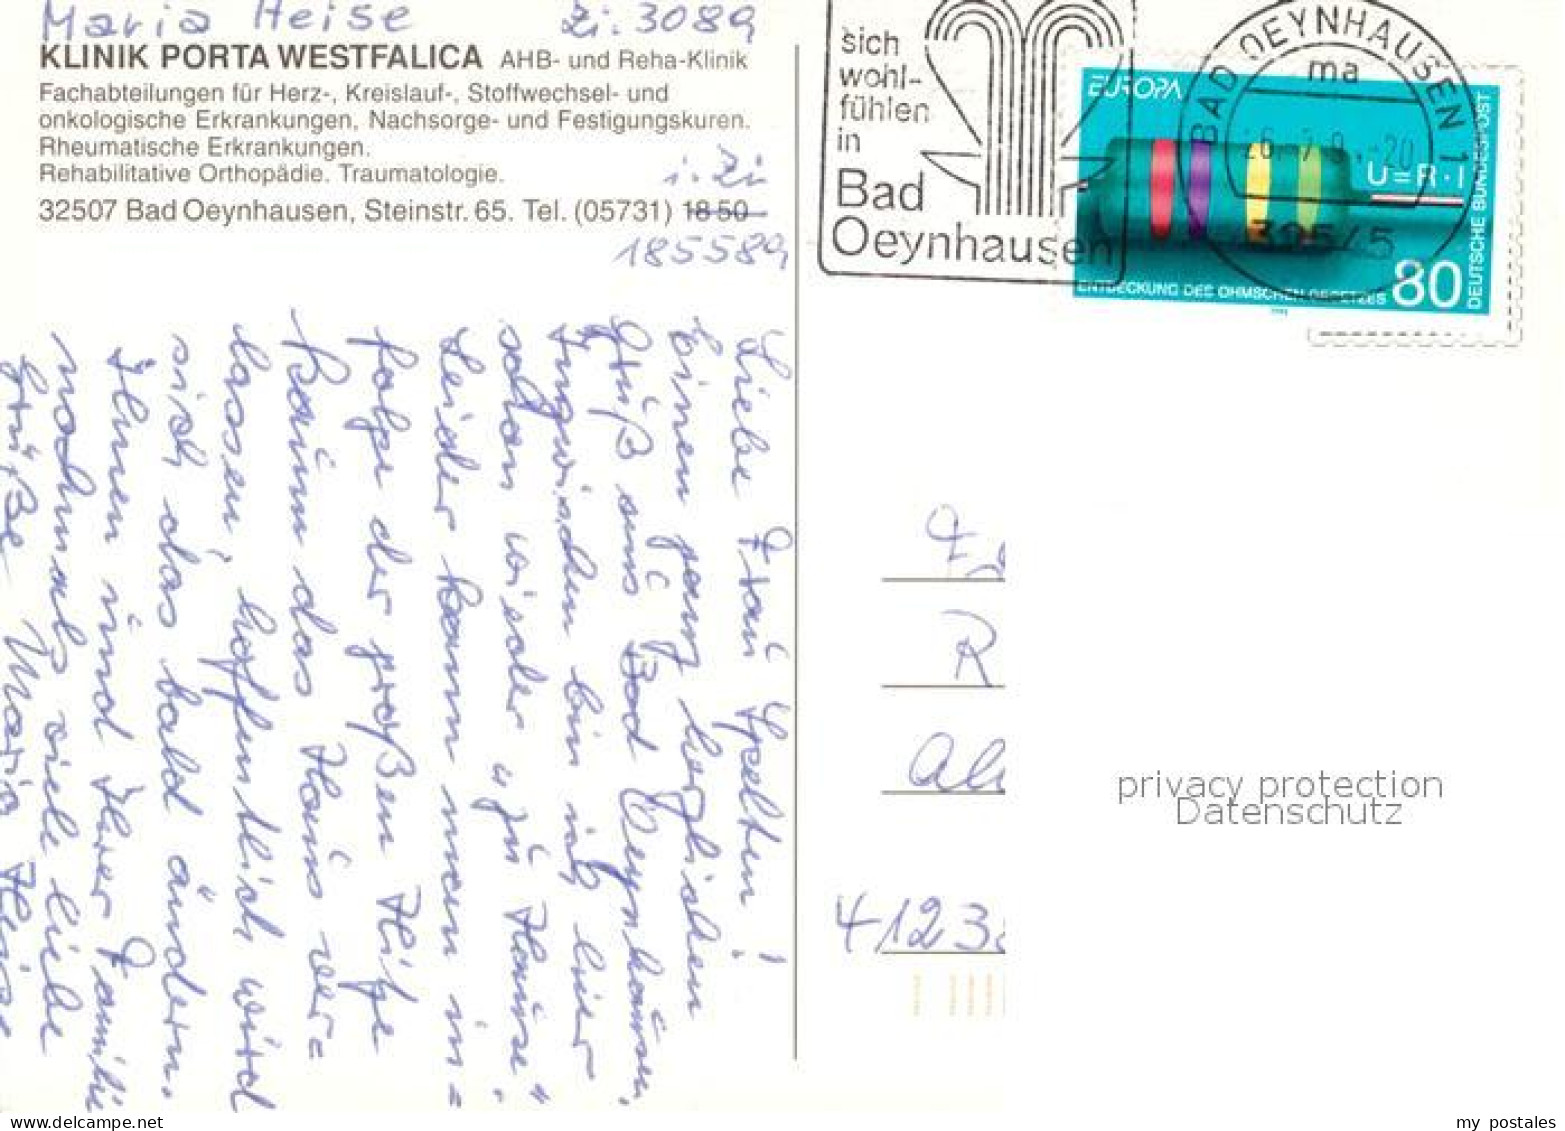 Maria Heise Zi. 3089
KLINIK PORTA WESTFALICA AHB- und Reha-Klinik
Fachabteilungen für Herz-, Kreislauf-, Stoffwechsel- und
onkologische Erkrankungen, Nachsorge- und Festigungskuren.
Rheumatische Erkrankungen.
Rehabilitative Orthopädie. Traumatologie.
i. Zi
32507 Bad Oeynhausen, Steinstr. 65. Tel. (05731) 18 50
185589
Liebe Frau !
Einen ganz herzlichen
Gruß aus Bad Oeynhausen,
Inzwischen bin ich hier
schon wieder "zu Hause".
Leider kann man in=
folge der großen Hitze
kaum das Haus ver=
lassen, hoffentlich wird
sich das bald ändern.
Ihnen und Ihrer Familie
nochmals viele liebe
Grüße Maria Heise
sich
wohl-
fühlen
in
Bad
Oeynhausen
BAD OEYNHAUSEN 1
ma
EUROPA
U=R·I
ENTDECKUNG DES OHMSCHEN GESETZES
80
DEUTSCHE BUNDESPOST
R
4123
privacy protection
Datenschutz
www.delcampe.net
my_postales